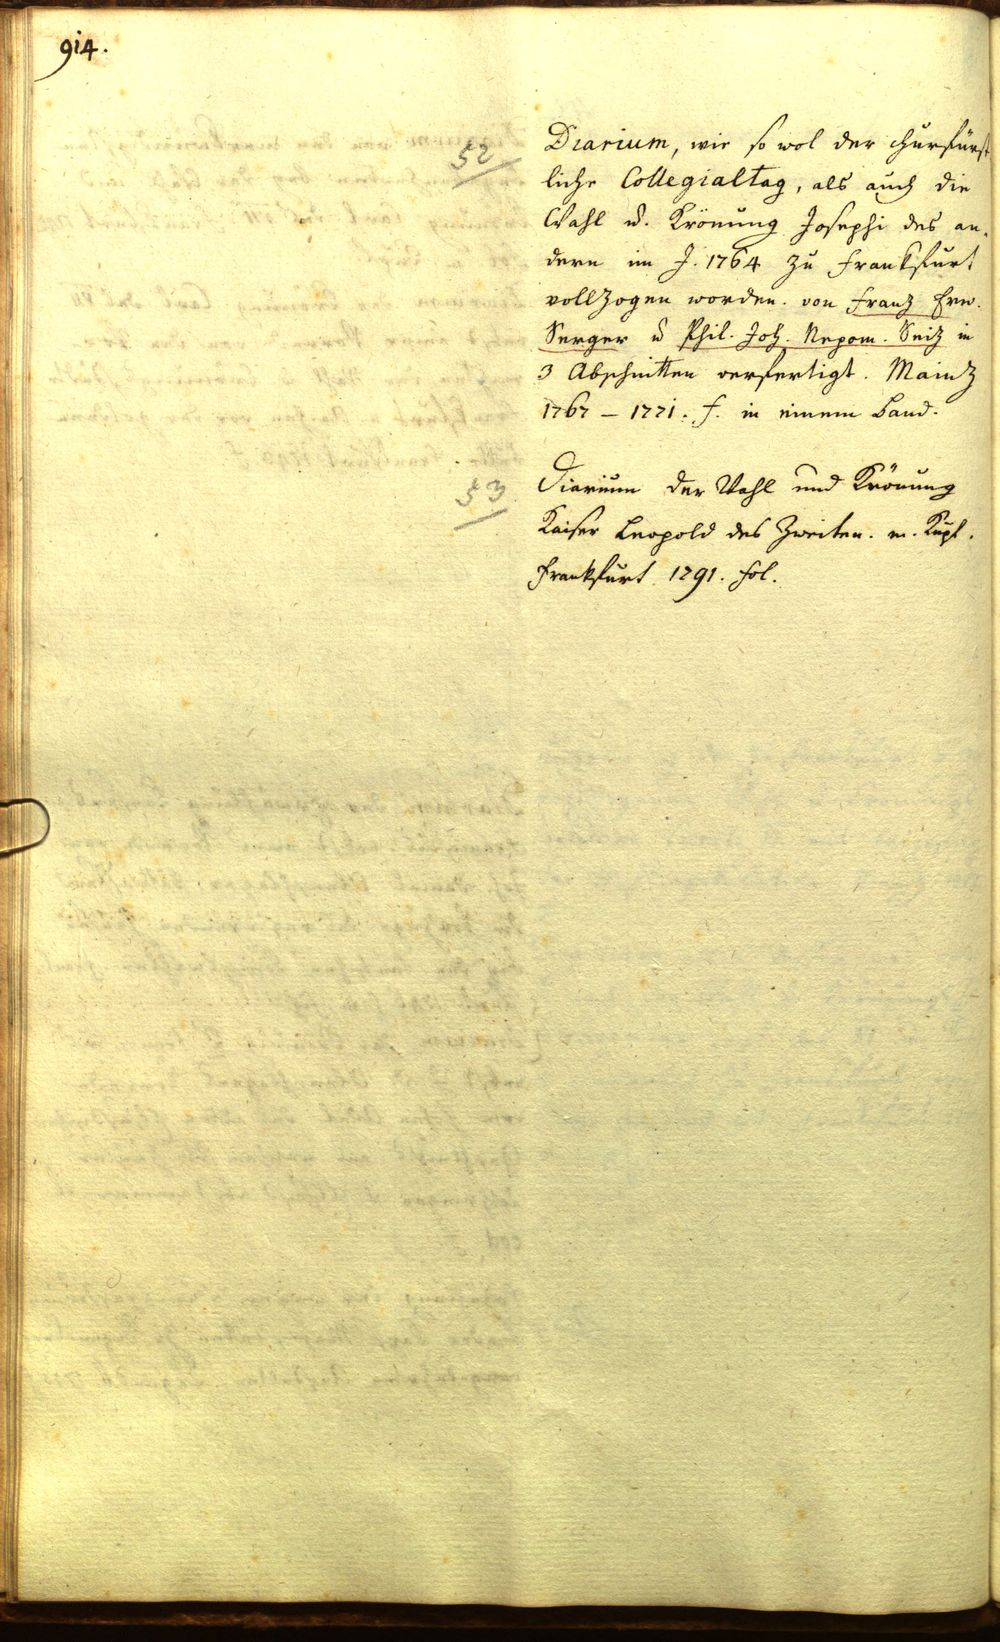 914.
52
Diarium, wie so wol der churfürst
liche Collegialtag, als auch die
Wahl u. Krönung Josephi des an,
dern im J. 1764 zu Frankfurt
vollzogen worden. von Franz
Serger u Phil. Joh. Nepom. Seiz in
3 Abschnitten verfertigt. Mainz
1767 – 1771. f. in einem Band.
53
Diarium der Wahl und Krönung
Kaiser Leopold des Zweiten. m. Kupf.
Frankfurt 1791. fol.